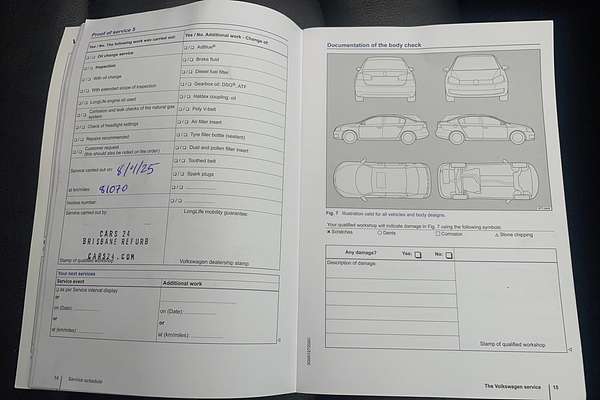 Proof of service 5
Yes / No. The following work was carried out:
Yes / No. Additional work - Change of:
❑ / ❑ Oil change service
❑ / ❑ AdBlue®
❑ / ❑ Inspection
❑ / ❑ Brake fluid
❑ / ❑ With oil change
❑ / ❑ Diesel fuel filter
❑ / ❑ With extended scope of inspection
❑ / ❑ Gearbox oil: DSG®, ATF
❑ / ❑ LongLife engine oil used
❑ / ❑ Haldex coupling: oil
❑ / ❑ Corrosion and leak checks of the natural gas system
❑ / ❑ Poly V-belt
❑ / ❑ Check of headlight settings
❑ / ❑ Air filter insert
❑ / ❑ Repairs recommended
❑ / ❑ Tyre filler bottle (sealant)
❑ / ❑ Customer request
(this should also be noted on the order)
❑ / ❑ Dust and pollen filter insert
❑ / ❑ Toothed belt
Service carried out on: 8/4/25
❑ / ❑ Spark plugs
at km/miles: 81070
❑ / ❑
Invoice number:
❑ / ❑
Service carried out by:
LongLife mobility guarantee:
CARS 24
BRISBANE REFURB
CARS24.COM
Stamp of qualified
Volkswagen dealership stamp
Your next services
Service event
Additional work
❑ as per Service interval display
or
on (Date):
on (Date):
or
or
at (km/miles):
at (km/miles):
14 Service schedule
Documentation of the body check
Fig. 7 Illustration valid for all vehicles and body designs.
Your qualified workshop will indicate damage in Fig. 7 using the following symbols:
× Scratches
○ Dents
□ Corrosion
△ Stone chipping
Any damage?
Yes: ❑
No: ❑
Description of damage:
Stamp of qualified workshop
The Volkswagen service 15